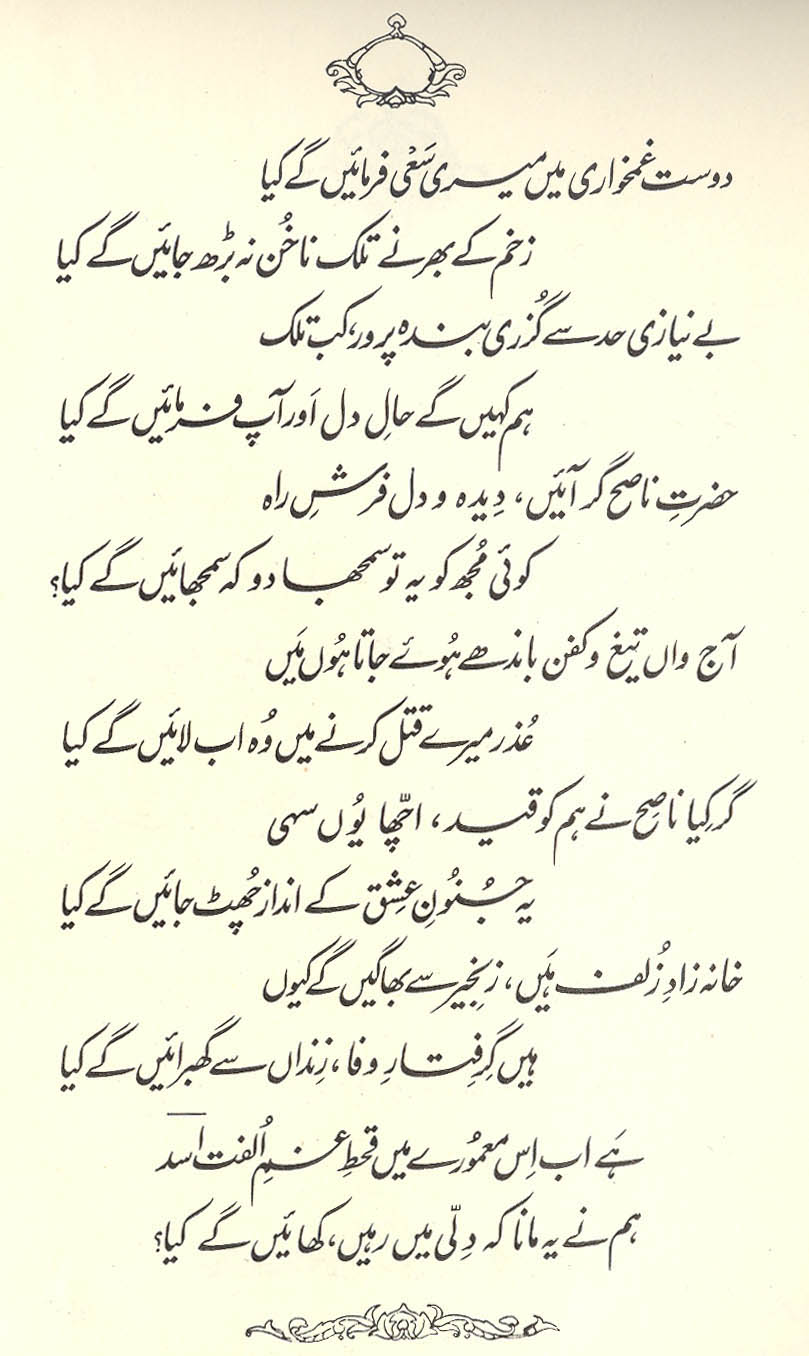 دوست غمخواری میں میری سَعْی فرمائیں گے کیا
زخم کے بھرنے تلک ناخُن نہ بڑھ جائیں گے کیا
بے نیازی حد سے گُزری بندہ پرور، کب تلک
ہم کہیں گے حالِ دل اَور آپ فرمائیں گے کیا
حضرتِ ناصح گر آئیں، دِیدہ و دل فرشِ راہ
کوئی مُجھ کو یہ تو سمجھا دو کہ سمجھائیں گے کیا؟
آج واں تیغ و کفن باندھے ہُوئے جاتا ہُوں مَیں
عُذر میرے قتل کرنے میں وُہ اب لائیں گے کیا
گر کِیا ناصِح نے ہم کو قید، اچّھا یُوں سہی
یہ جنُونِ عِشق کے انداز چُھٹ جائیں گے کیا
خانہ زادِ زُلف ہَیں، زنجیر سے بھاگیں گے کیوں
ہیں گرِفتارِ وفا، زِنداں سے گھبرائیں گے کیا
ہَے اب اِس معمُورے میں قحطِ غمِ اُلفت اسد
ہم نے یہ مانا کہ دِلّی میں رہیں، کھائیں گے کیا؟